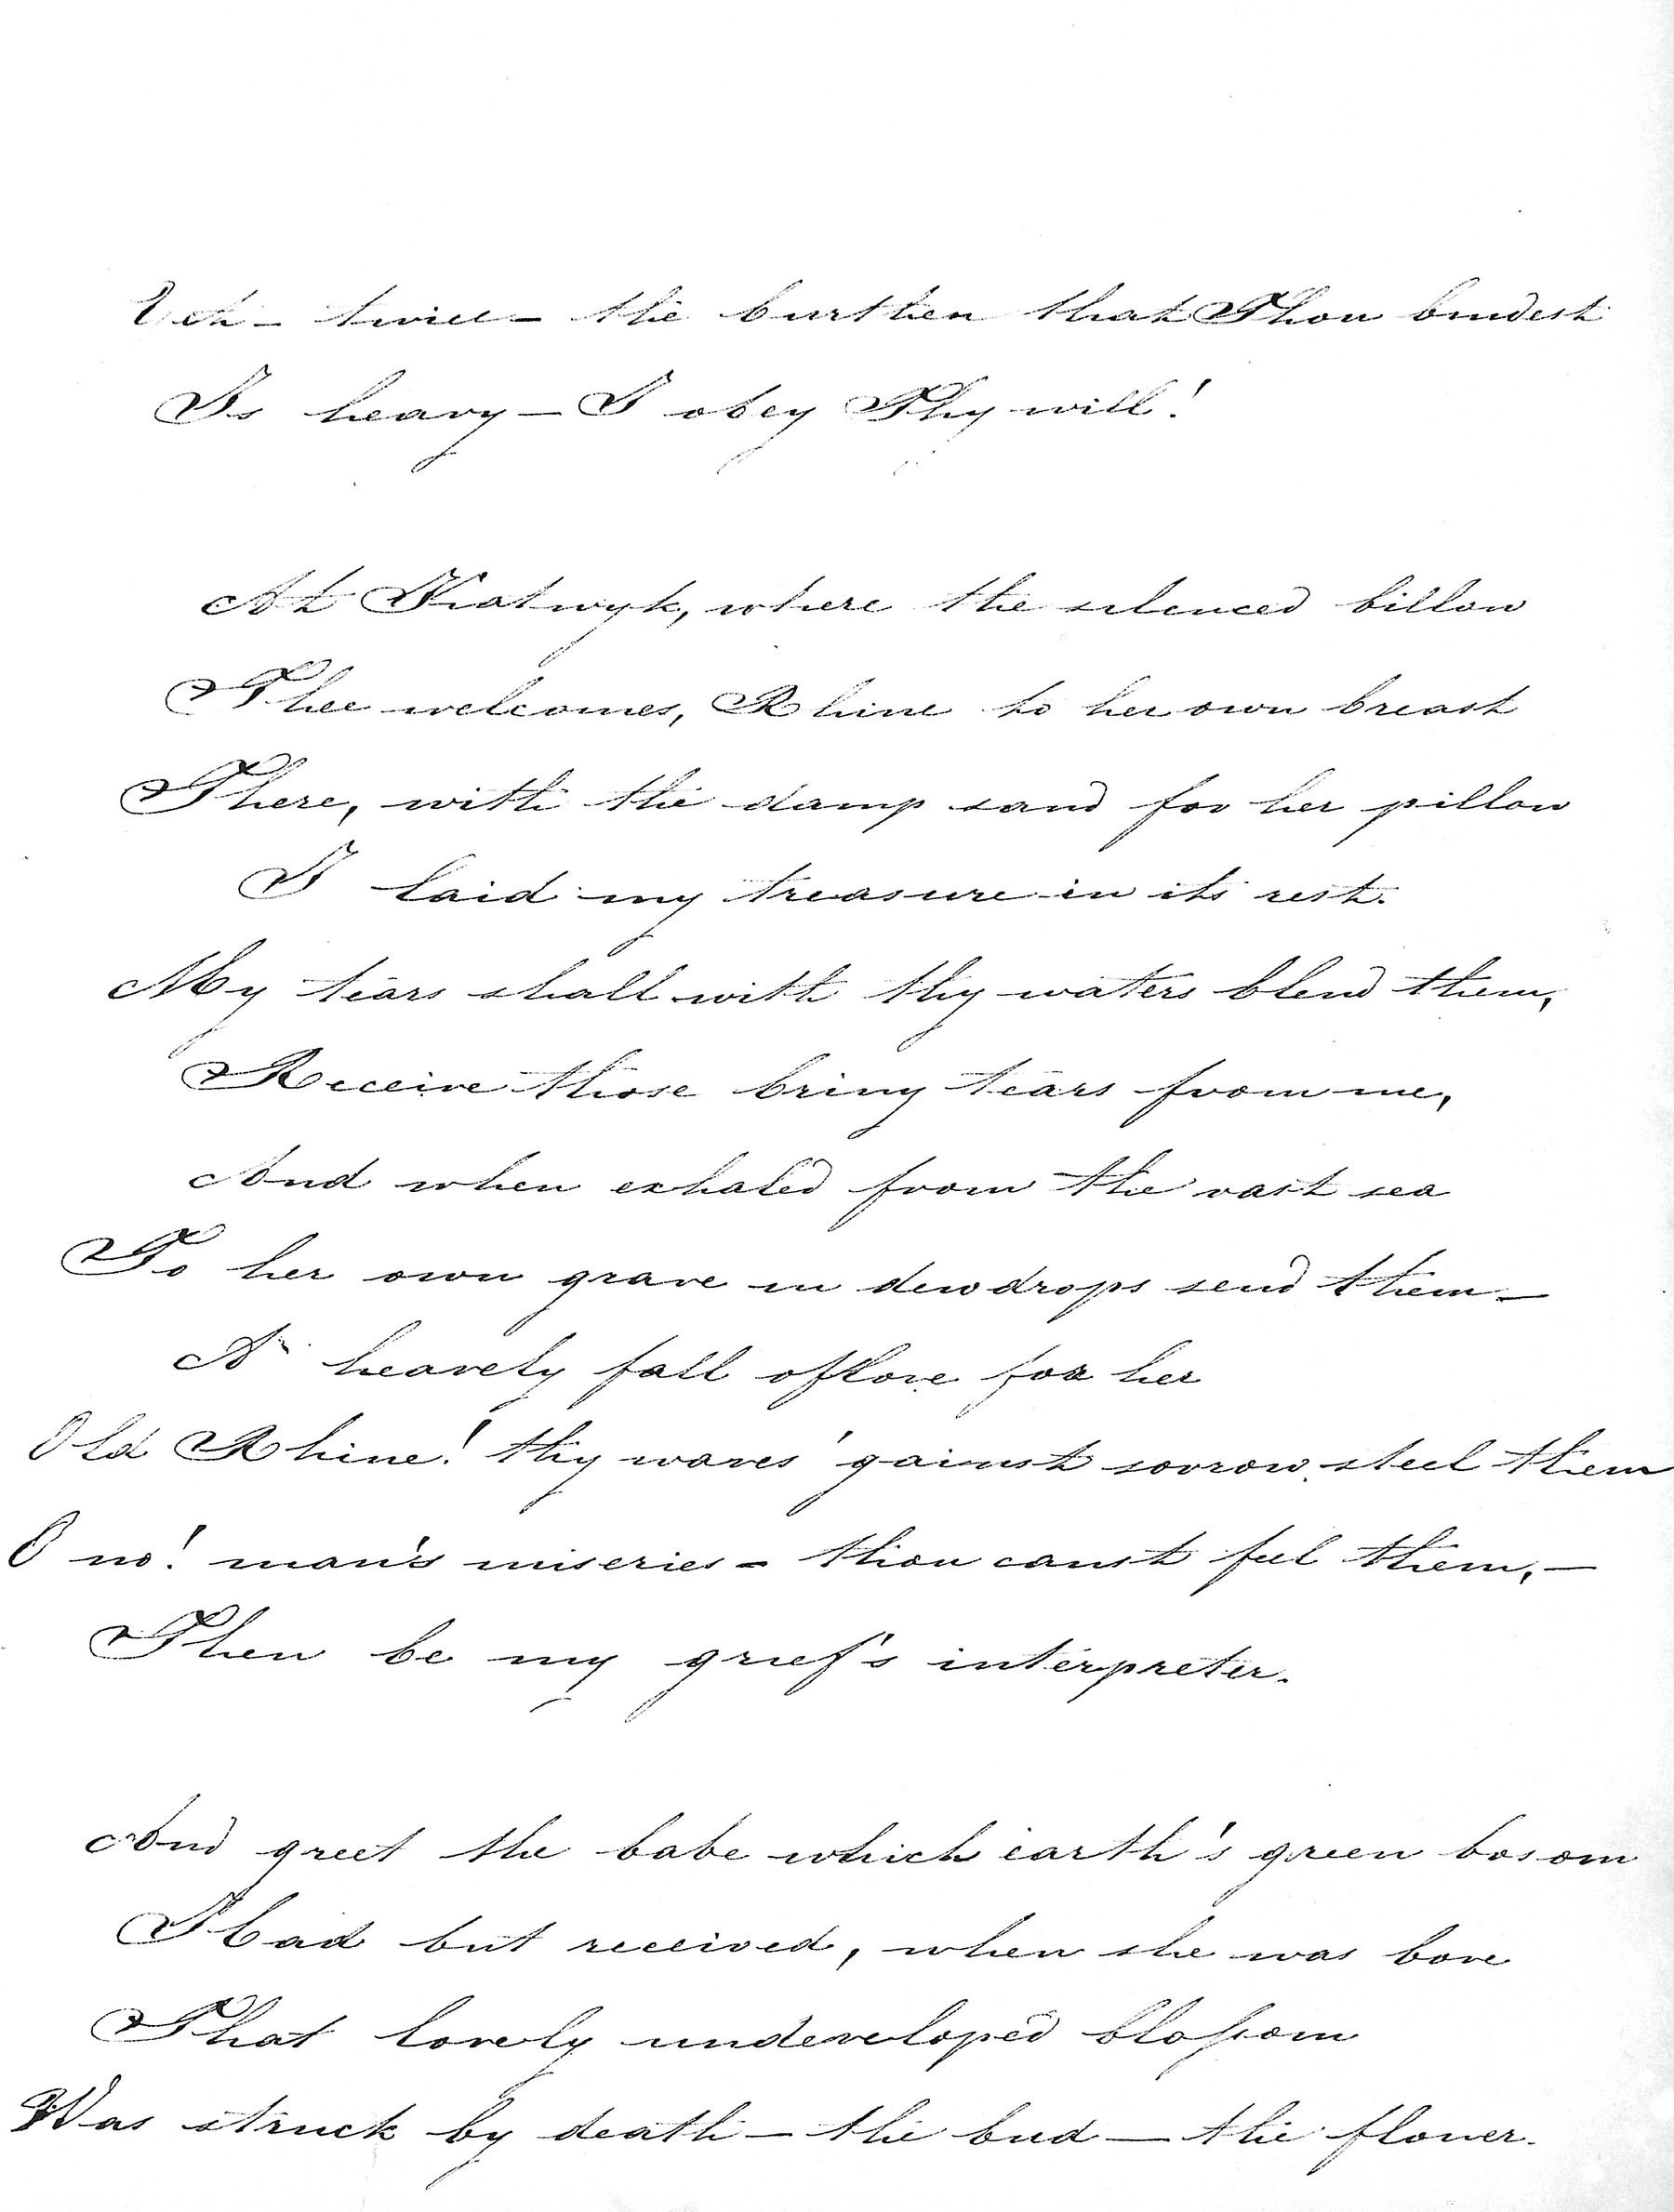 Yet - twice - the burthen that Thou bindest
Is heavy - I obey Thy will!
At Katwyk, where the silenced billow
Thee welcomes, Rhine to her own breast
There, with the damp sand for her pillow
I laid my treasure in its rest.
My tears shall with thy waters blend them,
Receive those briny tears from me,
And when exhaled from the vast sea
To her own grave in dewdrops send them -
A heavely fall of love for her
Old Rhine! thy waves 'gainst sorrow steel them
O no! man's miseries - thou canst feel them, -
Then be my grief's interpreter.
And greet the babe which earth's green bosom
Had but received, when she was bore
That lovely undeveloped blossom
Was struck by death - the bud - the flower.